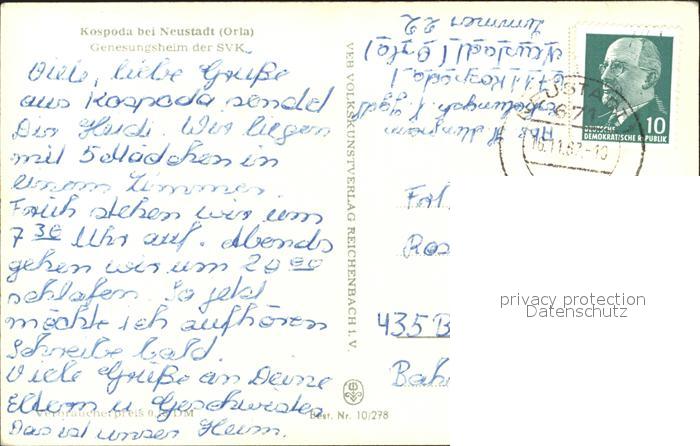 Kospoda bei Neustadt (Orla)
Genesungsheim der SVK
Viele, liebe Grüße
aus Kospoda sendet
Dir Heidi. Wir liegen
mit 5 Mädchen in
einem Zimmer.
Früh stehen wir um
7 30 Uhr auf. Abends
gehen wir um 20 00
schlafen. So jetzt
möchte ich aufhören
Schreibe bald.
Viele Grüße an Deine
Eltern u. Geschwister
Das ist unser Heim.
Verbraucherpreis DM
Best. Nr. 10/278
VEB VOLKSKUNSTVERLAG REICHENBACH I. V.
Abs. H.
6711 Kospoda
Neustadt (Orla)
Zimmer 22
671
16.11.67-16
10
DEUTSCHE
DEMOKRATISCHE REPUBLIK
Ros
435 B
Bah
privacy protection
Datenschutz